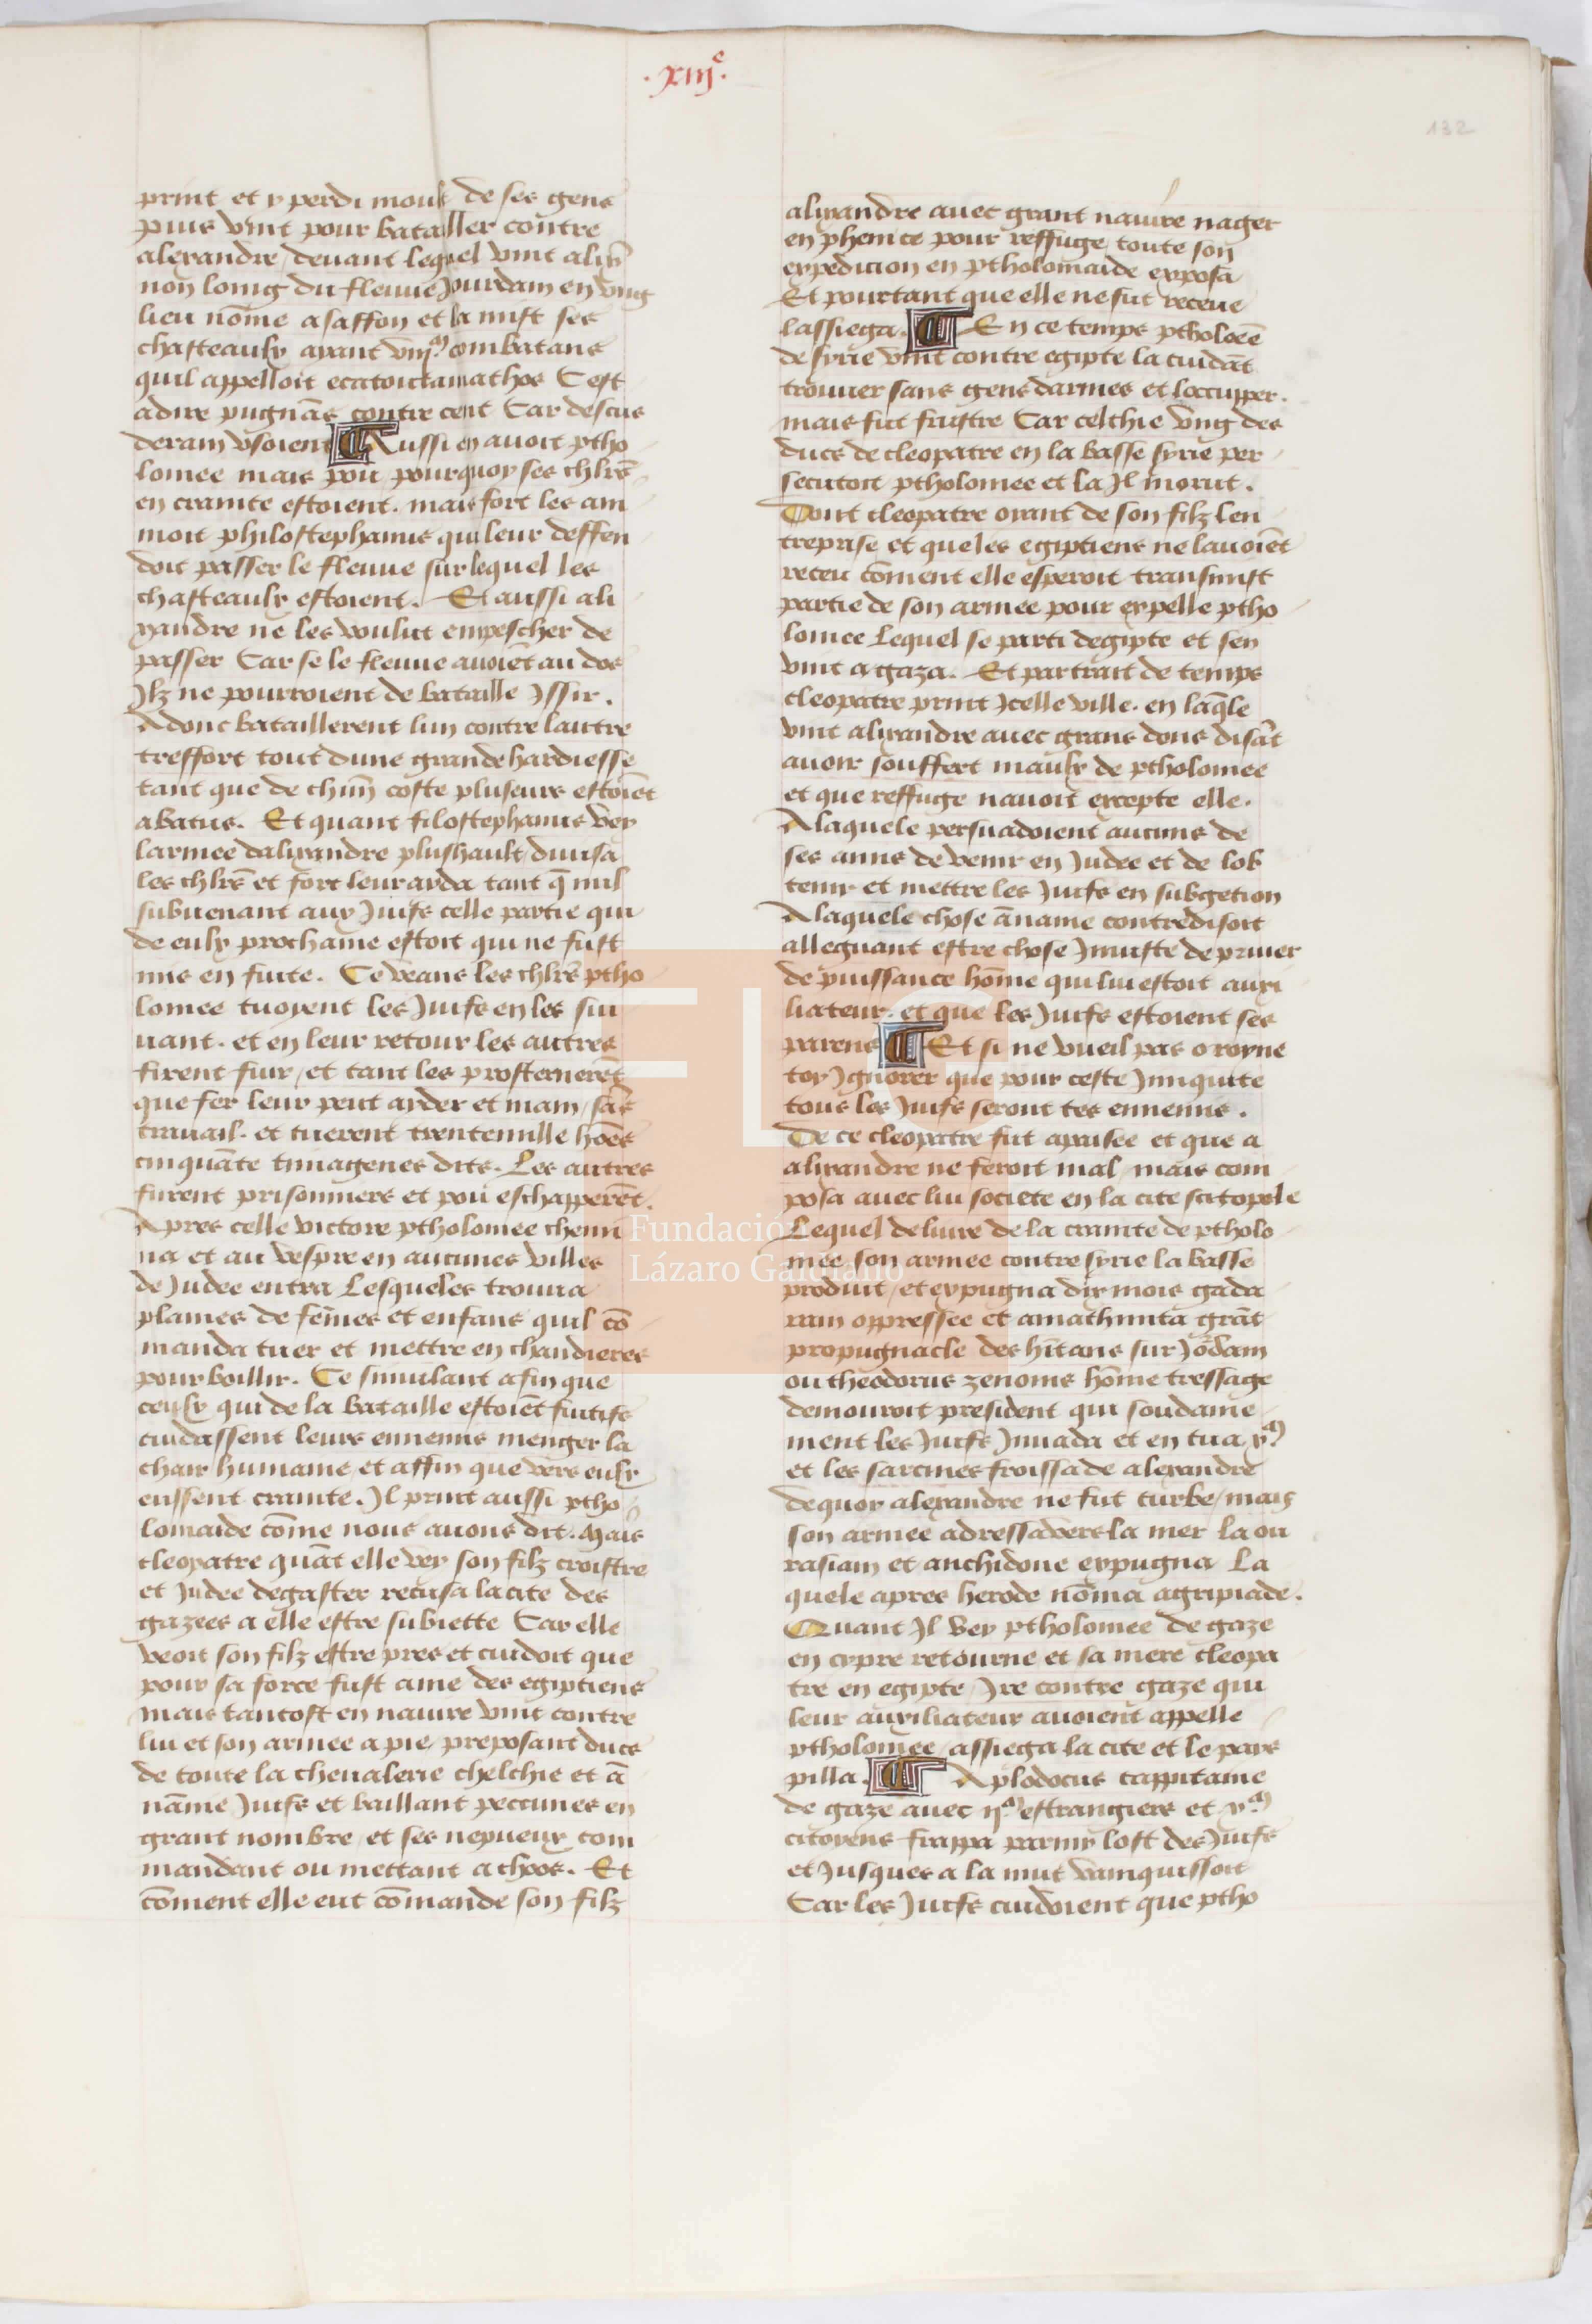 .xiijᵉ.
132
print et y perdi moult de ses gens
puis vint pour batailler contre
alexandre / devant lequel vint alixᵉ̄
non loing du fleuve Jourdain en vng
lieu nōme asaffon et la mist ses
chasteaulx ayant viijᵐ combatans
quil appelloit ecatontamathos C est
adire pugnās contre cent Car descus
deram vsoient Aussi en avoit ptho
lomee mais pou pourquoy ses chlrs̄
en crainte estoient. mais fort les ani
moit philostephanus qui leur deffen
doit passer le fleuve sur lequel les
chasteaulx estoient. Et aussi ali
xandre ne les voulut empescher de
passer Car se le fleuve avoiēt au dos
Ilz ne pourroient de bataille Issir.
Adonc bataillerent lun contre lautre
treffort tout dune grande hardiesse
tant que de chūn coste pluseurs estoiēt
abatus. Et quant filostephanus vey
larmee dalixandre plushault / divisa
les chlrs̄ et fort leur ayda tant q̄ nul
subvenant aux Juifs celle partie qui
de eulx prochaine estoit qui ne fust
mis en fuite. Ce veans les chlrs̄ ptho
lomee tuoyent les Juifs en les sui
uant. et en leur retour les autres
firent fuir / et tant les prosternerēt
que fer leur peut ayder et main / sās
travail. et tuerent trentemille hōes
cinquāte timagenes dits. Les autres
furent prisonniers et pou eschapperēt.
Apres celle victore ptholomee chemi
na et au vespre en aucunes villes
de Judee entra Lesqueles trouva
plaines de fēmes et enfans quil cō
manda tuer et mettre en chaudieres
pour boillir. Ce simulant afin que
ceulx qui de la bataille estoiēt fuitifs
cuidassent leurs ennemis menger la
chair humaine et affin que vers eulx
eussent crainte. Il print aussi ptho
lomaide cōme nous avons dit. Mais
cleopatre quāt elle vey son filz croistre
et Judee degaster recusa la cite des
gazees a elle estre subiette Car elle
veoit son filz estre pres et cuidoit que
pour sa force fust ame des egiptiens
mais tantost en navire vint contre
lui et son armee a pie / preposant ducs
de toute la chevalerie chelchie et ā
nāme Juifs et baillant peccunes en
grant nombre et ses nepueux com
mandant ou mettant a choos. Et
cōment elle eut cōmande son filz
alixandre avec grant navire nager
en phenice pour reffuge / toute son
expedicion en ptholomaide exposa
Et pourtant que elle ne fut receue
lassiega. En ce temps ptholoēe
de syrie vint contre egipte la cuidāt
trouver sans gens darmes et loccupper.
mais fut frustre Car celchie vng des
ducs de cleopatre en la basse syrie per
secutoit ptholomee et la Il morut.
Dont cleopatre oyant de son filz len
treprise et que les egiptiens ne lavoiēt
receu cōment elle esperoit transmist
partie de son armee pour expelle ptho
lomee Lequel se parti degipte et sen
vint a gaza. Et par trait de temps
cleopatre print Icelle ville. en laq̄le
vint alixandre avec grans dons disāt
avoir souffert maulx de ptholomee
et que reffuge navoit excepte elle.
A laquele persuadoient aucuns de
ses amis de venir en Judee et de lob
tenir et mettre les Juifs en subgetion
A laquele chose āname contredisoit
alleguant estre chose Iniuste de priver
de puissance hōme qui lui estoit auxi
liateur. et que les Juifs estoient ses
parens Et si ne vueil pas o royne
toy Ignorer que pour ceste Iniquite
tous les Juifs seront tes ennemis.
De ce cleopatre fut apaisee et que a
alixandre ne feroit mal / mais com
posa avec lui societe en la cite scitopole
Lequel delivre de la crainte de ptholo
mee son armee contre syrie la basse
produit / et expugna dix mois gada
ram oppressee et amathunta grāt
propugnacle des hītans sur Jōdam
ou theodorus zenoms hōme tressage
demouroit president qui soudaine
ment les Juifs Invada et en tua xᵐ
et les sarcines froissa de alexandre
de quoy alexandre ne fut turbe / mais
son armee adressa vers la mer la ou
rasiam et anchidone expugna La
quele apres herode nōma agripiade.
Quant Il vey ptholomee de gaze
en cypre retourne et sa mere cleopa
tre en egipte / Ire contre gaze qui
leur auxiliateur avoient appelle
ptholomee / assiega la cite et le pays
pilla. Aplodocus cappitaine
de gaze avec ijᵐ estrangiers et xᵐ
citoyens frappa parmy lost des Juifs
et Jusques a la nuit vainquissoit
Car les Juifs cuidoient que ptho
Fundación
Lázaro Galdiano
FLG